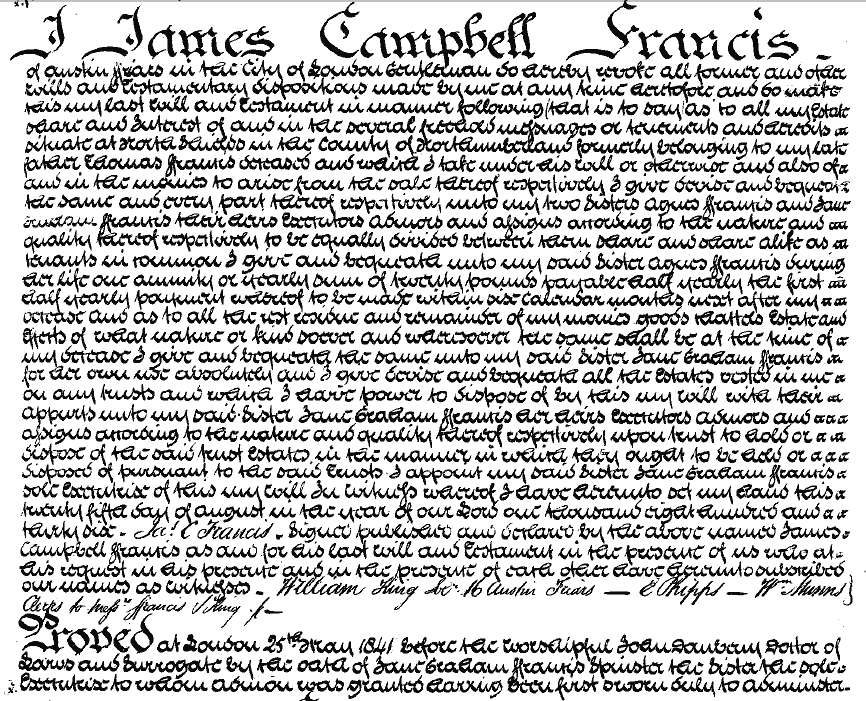 I James Campbell Francis
of Austin ffriars in the City of London Gentleman do hereby revoke all former and other
wills and testamentary dispositions made by me at any time heretofore and do make
this my last will and testament in manner following that is to say as to all my Estate
share and Interest of and in the several freehold messuages or tenements and heredits
situate at North Shields in the county of Northumberland formerly belonging to my late
father Thomas ffrancis deceased and which I take under his will or otherwise and also of
and in the monies to arise from the sale thereof respectively I give devise and bequeath
the same and every part thereof respectively unto my two Sisters Agnes ffrancis and Jane
Graham ffrancis their heirs Executors admors and assigns according to the nature and
quality thereof respectively to be equally divided between them share and share alike as
tenants in common I give and bequeath unto my said Sister Agnes ffrancis during
her life one annuity or yearly sum of twenty pounds payable half yearly the first
half yearly payment whereof to be made within six Calendar months next after my
decease and as to all the rest residue and remainder of my monies goods chattels Estate and
Effects of what nature or kind soever and wheresoever the same shall be at the time of
my decease I give and bequeath the same unto my said Sister Jane Graham ffrancis
for her own use absolutely and I give devise and bequeath all the Estates vested in me
on any trusts and which I have power to dispose of by this my will with their
appurts unto my said Sister Jane Graham ffrancis her heirs Executors admors and
assigns according to the nature and quality thereof respectively upon trust to hold or
dispose of the said trust Estates in the manner in which they ought to be held or
disposed of pursuant to the said trusts I appoint my said Sister Jane Graham ffrancis
sole Executrix of this my will In witness whereof I have hereunto set my hand this
twenty fifth day of August in the year of our Lord one thousand eight hundred and
thirty six - Jas. C Francis - Signed published and declared by the above named James
Campbell ffrancis as and for his last will and testament in the present of us who at
his request in his presence and in the present of each other have hereunto subscribed
our names as witnesses - William King Austin Friars - E Phipps - Wm
Clerks to Messrs ffrancis & King
Proved at London 25th May 1841 before the worshipful John Danbeny Doctor of
Laws and Surrogate by the oath of Jane Graham ffrancis Spinster the Sister the sole
Executrix to whom admon was granted having been first sworn duly to administer.